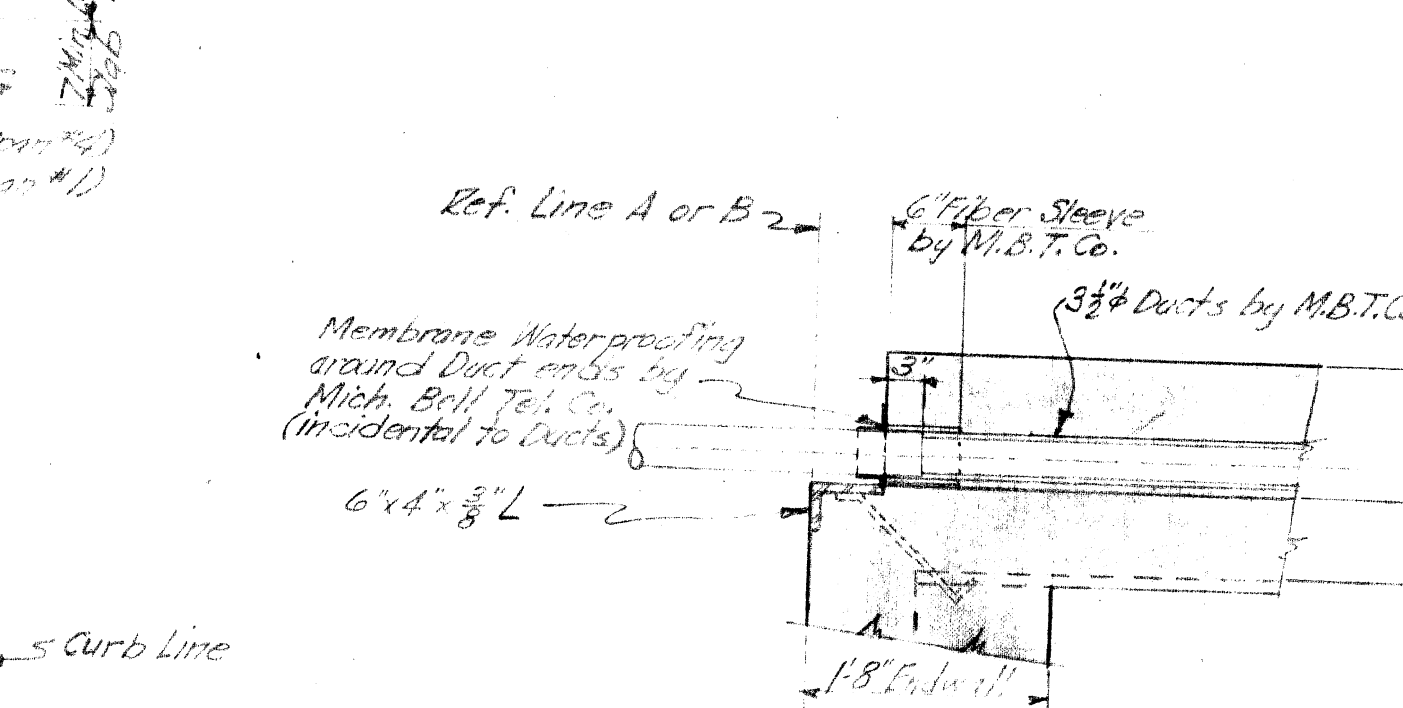 7" Min.
Slab
#4)
#1)
Ref. Line A or B
6" Fiber Sleeve
by M.B.T. Co.
3½"ϕ Ducts by M.B.T.Co
Membrane Waterproofing
around Duct ends by
Mich. Bell Tel. Co.
(incidental to Ducts)
3"
6"x4"x⅜" L
Curb Line
1'-8" Endwall